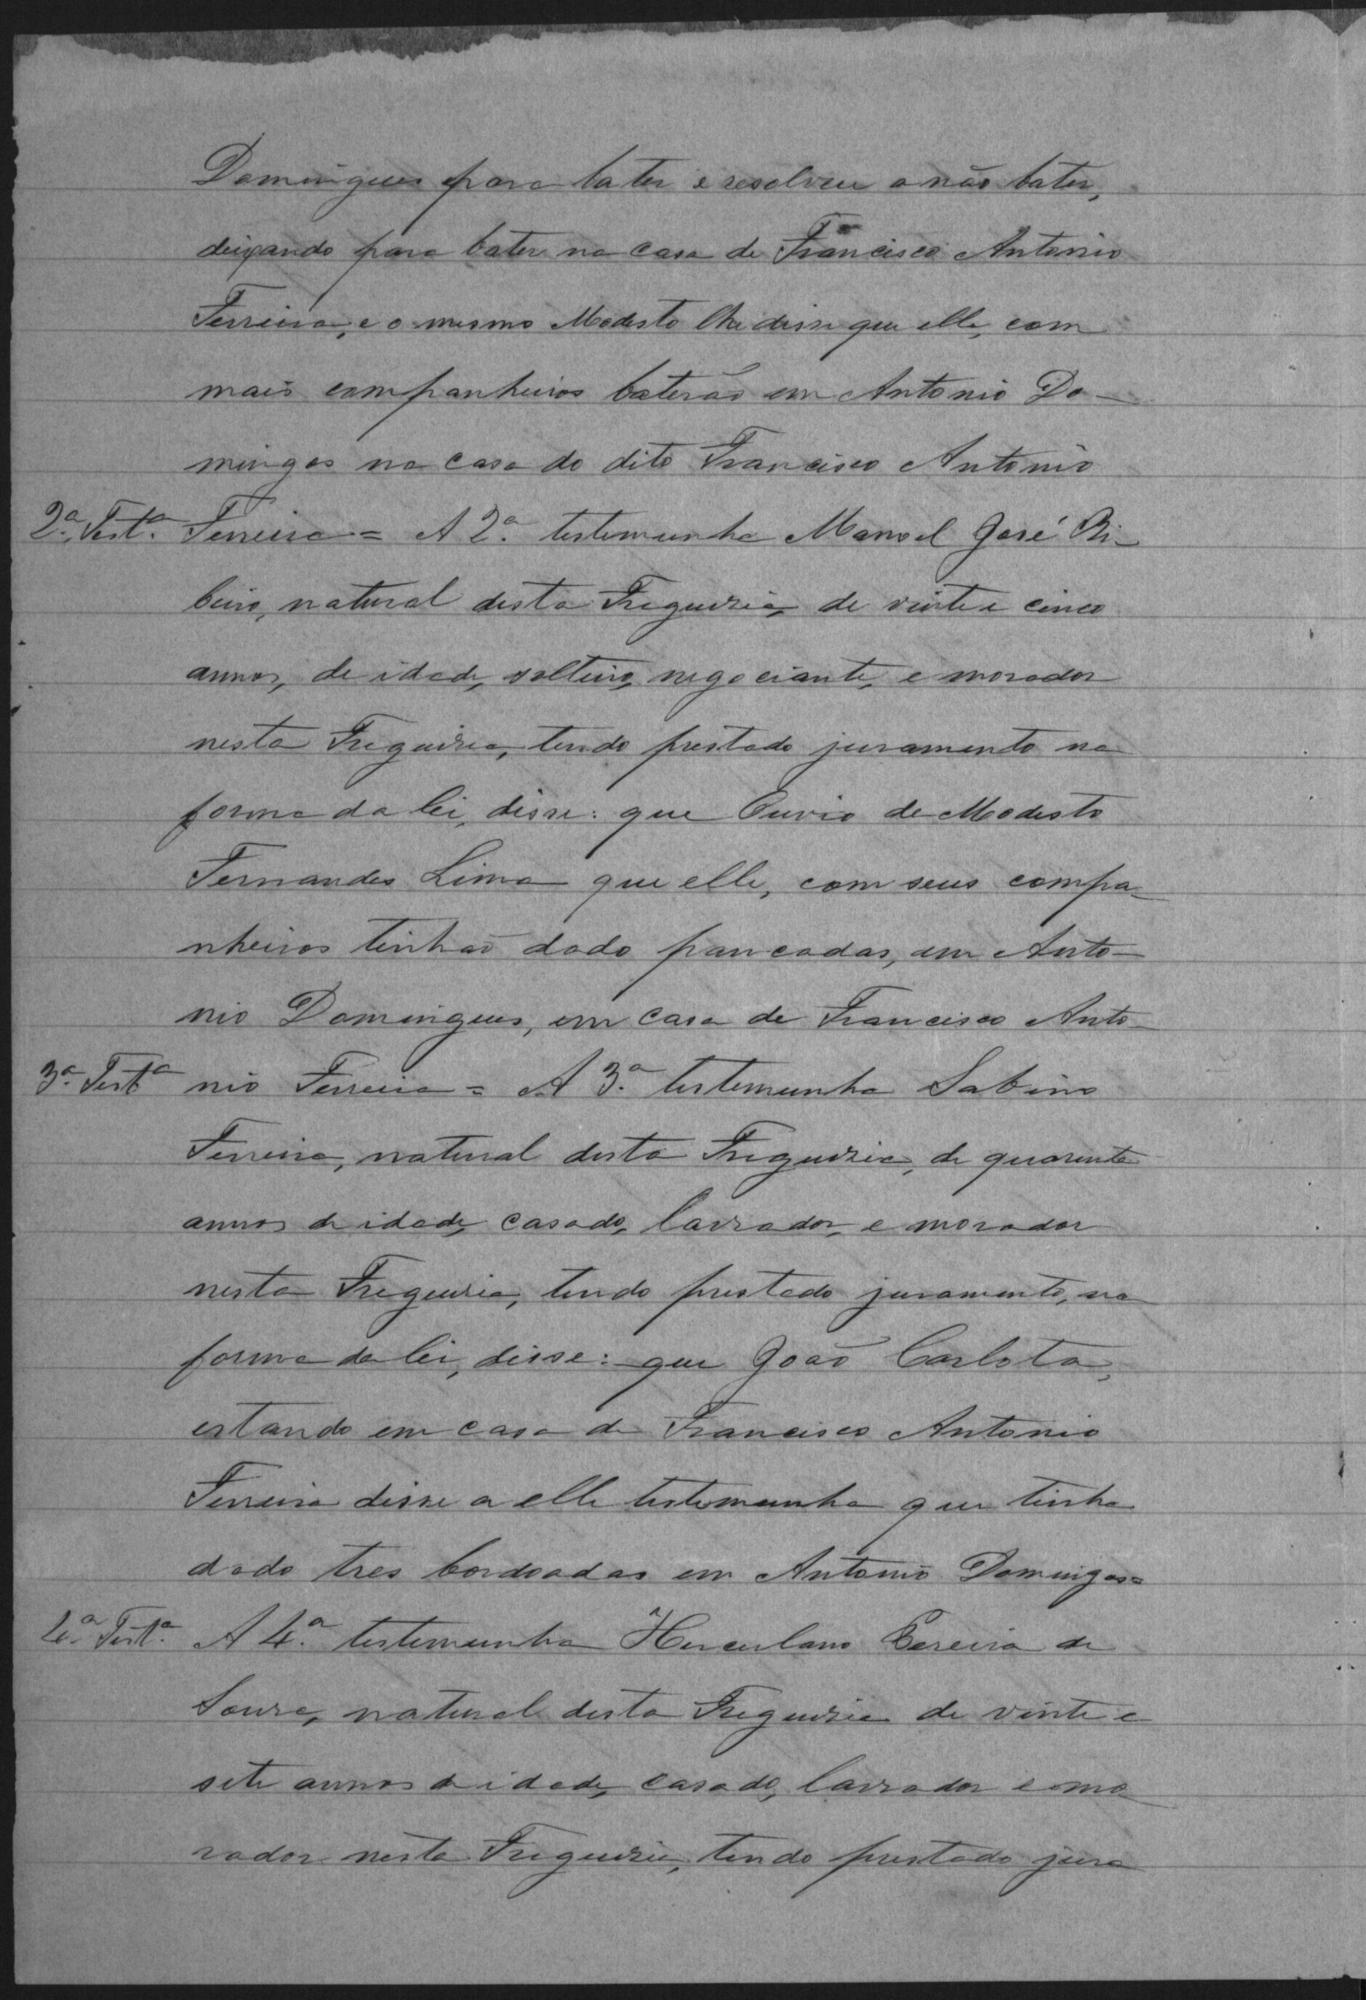 Domingues para bater e resolveu a não bater,
deixando para bater na casa de Francisco Antonio
Ferreira, e o mesmo Modesto lhe disse que elle, com
mais companheiros baterão em Antonio Do-
mingos na casa do dito Francisco Antonio
2ª Testª Ferreira = A 2ª testemunha Manoel José Ri-
beiro, natural desta Freguezia, de vinte e cinco
annos, de idade, solteiro, negociante, e morador
nesta Freguezia, tendo prestado juramento na
forma da lei, disse: que Ouvio de Modesto
Fernandes Lima que elle, com seus compa-
nheiros tinhão dado pancadas, em Anto-
nio Domingues, em casa de Francisco Anto-
3ª Testª nio Ferreira = A 3ª testemunha Sabino
Ferreira, natural desta Freguezia, de quarenta
annos de idade, casado, lavrador, e morador
nesta Freguezia, tendo prestado juramento, na
forma da lei, disse: que João Carlota,
estando em casa de Francisco Antonio
Ferreira disse a elle testemunha que tinha
dado tres bordoadas em Antonio Domingos=
4ª Testª A 4ª testemunha Herculano Pereira de
Souza, natural desta Freguezia de vinte e
sete annos de idade, casado, lavrador e mo
rador nesta Freguezia, tendo prestado jura